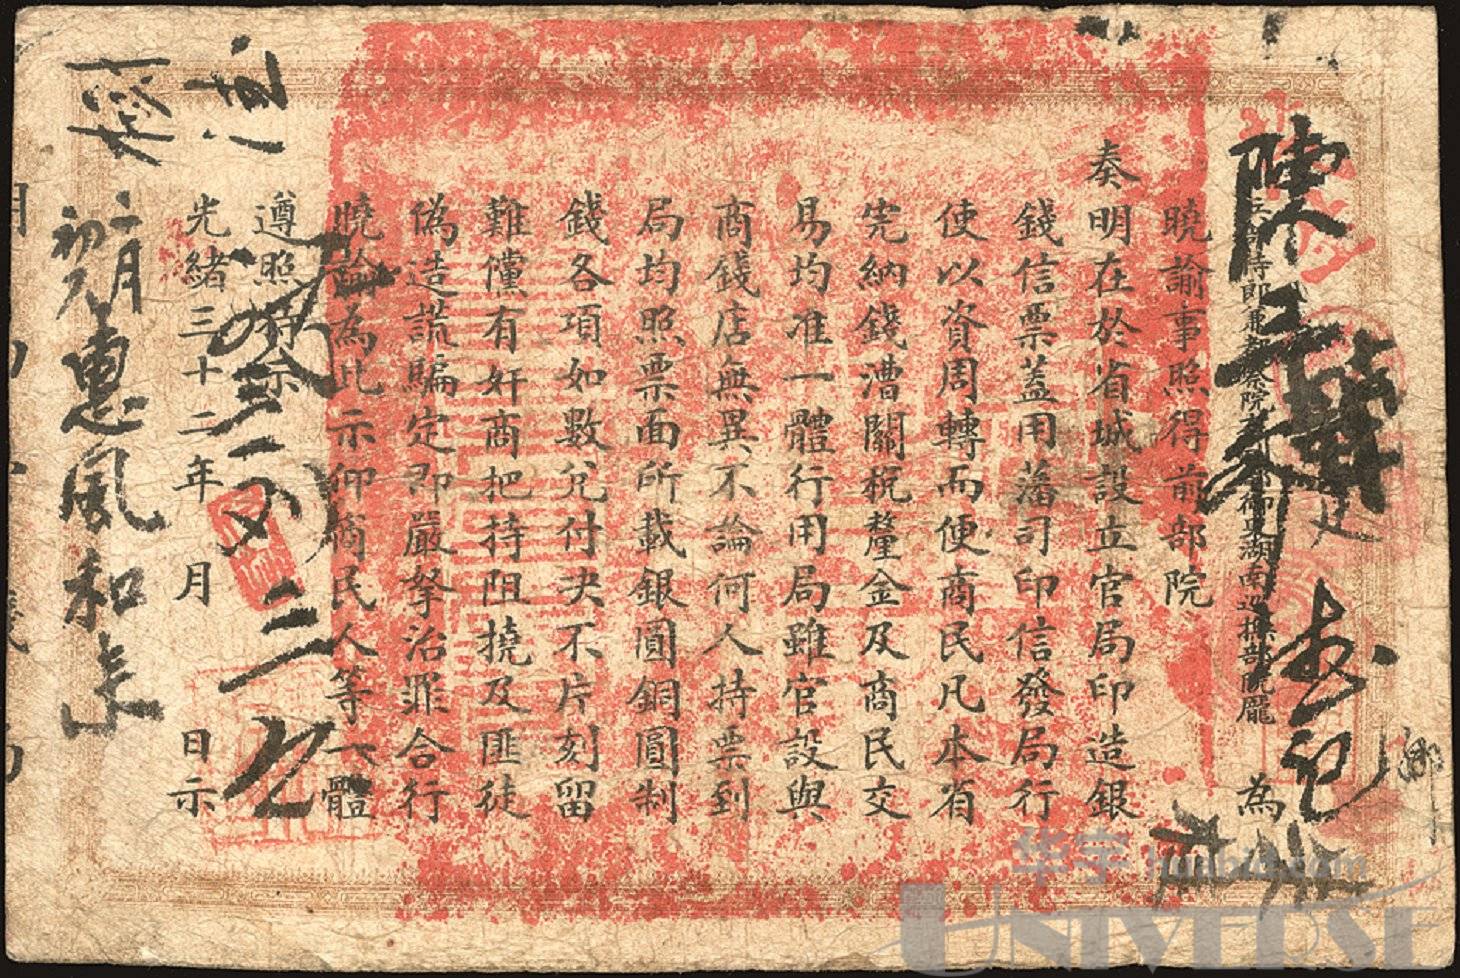 兵部侍郎兼都察院右副都御史湖南巡撫部院龐 為
曉諭事照得前部院
奏明在於省城設立官局印造銀
錢信票蓋用藩司印信發局行
使以資周轉而便商民凡本省
完納錢漕關稅釐金及商民交
易均准一體行用局雖官設與
商錢店無異不論何人持票到
局均照票面所載銀圓銅圓制
錢各項如數兌付決不片刻留
難儻有奸商把持阻撓及匪徒
偽造謊騙定即嚴拏治罪合行
曉諭為此示仰商民人等一體
遵照特示
光緒三十二年 月 日示
二月
初九
惠風和
华宇 huabid.com
UNIVERSE